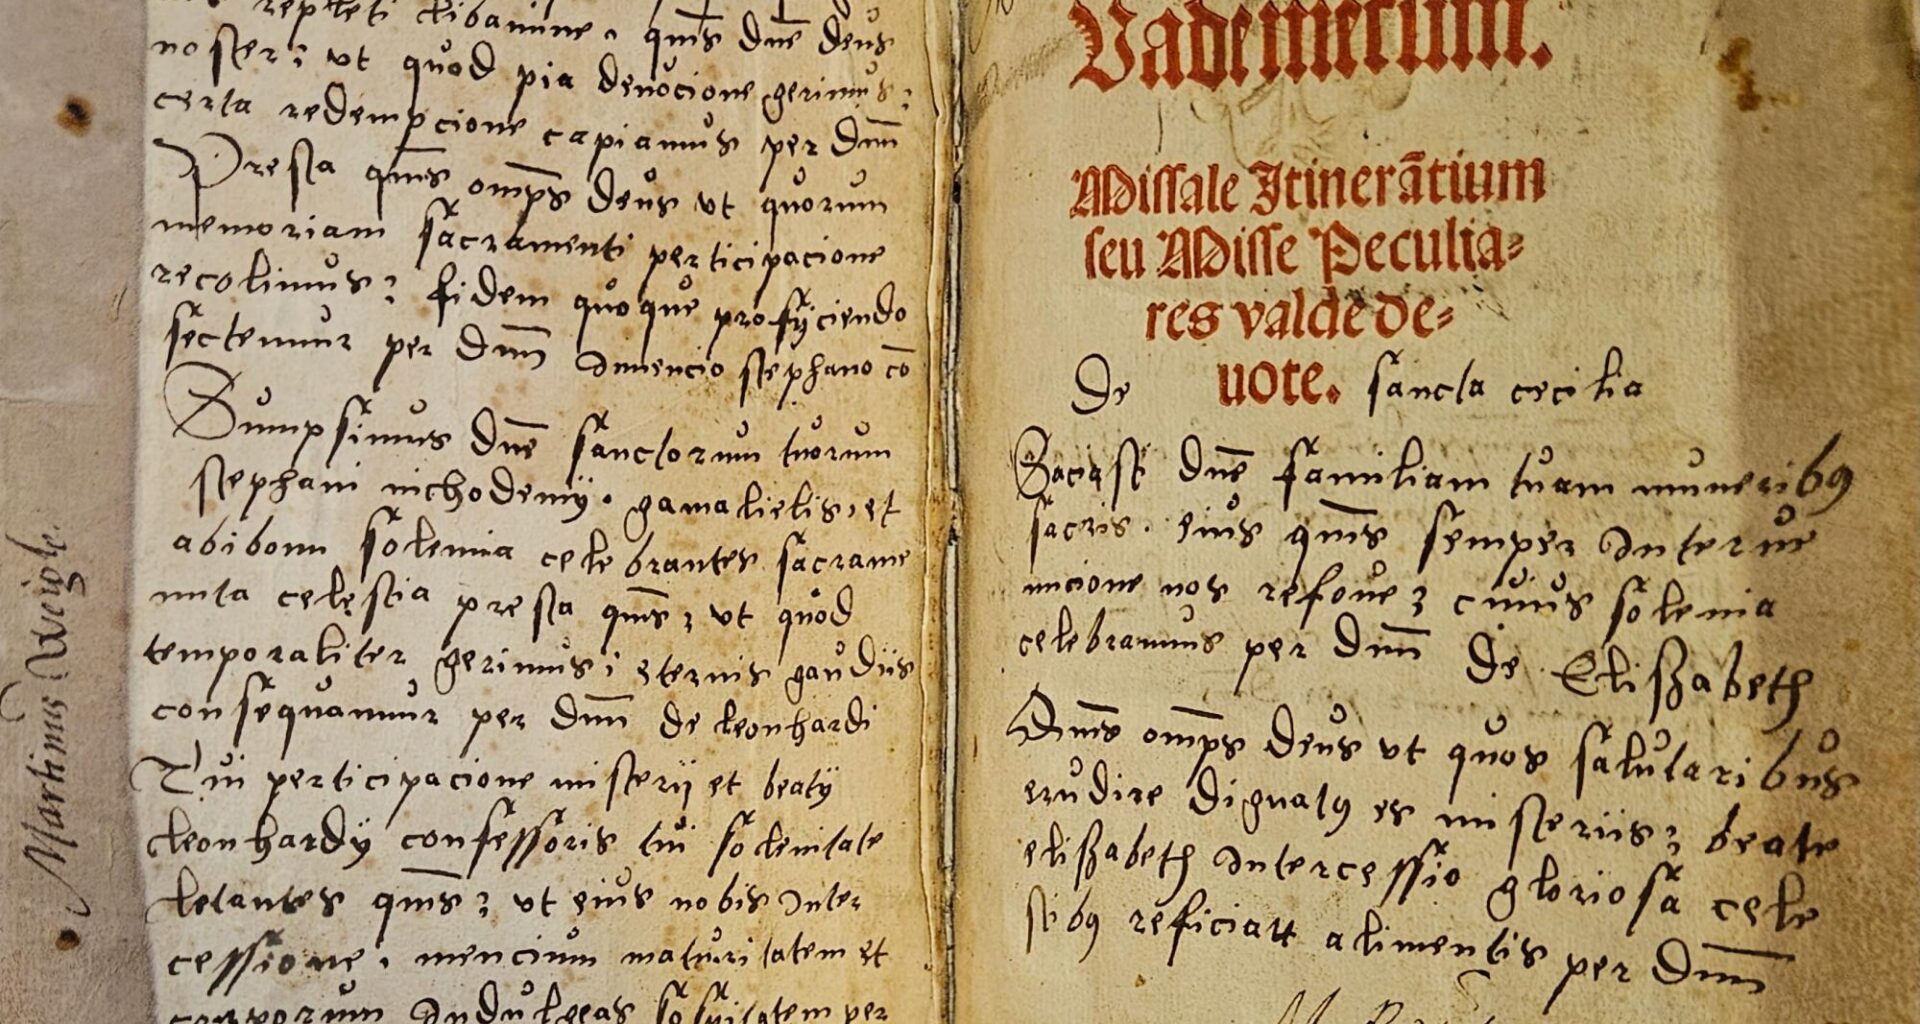 repleti libamine, qums dne deus
noster; ut quod pia devocione gerimus;
certa redempcione capiamus per dnm
Presta qums omps deus ut quorum
memoriam sacramenti perticipacione
recolimus; fidem quoque profyciendo
sectemur per dnm Invencio stephano co
Sumpsimus dne sanctorum tuorum
stephani nichodemy. gamalielis, et
abibon solemnia celebrantes sacrame
nta celestia presta qums; ut quod
temporaliter gerimus; eternis gaudiis
consequamur per dnm de leonhardi
Tui perticipacione misterij et beaty
leonhardy confessoris tui solenitate
letantes qums; ut eius nobis inter
cessione, mencium maturitatem et
corporum Indulgeas sospitatem per
Martinus Weigle
Vademecum.
Missale Itinerātium
seu Misse Peculia=
res valde de=
uote.
De sancta cecilia
Saciasti dne familiam tuam muneribꝯ
sacris. eius qums semper Interve
ncione nos refove; cuius solenia
celebramus per dnm De Elisʒabeth
Qums omps deus ut quos salutaribus
erudire dignatꝯ es misteriis; beate
elisʒabeth Intercessio gloriosa cele
stibꝯ reficiatt alimentis per dnm